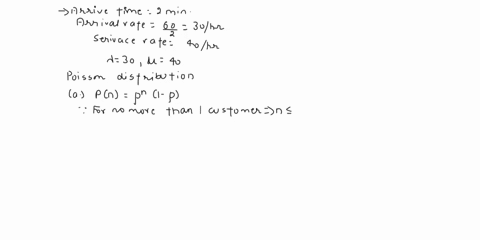 →Arrive time = 2 min.
Arrival rate = 60/2 = 30/hr
Serivace rate = 40/hr
λ=30, μ = 40
Poisson distribution
(a) P(n) = ρⁿ (1-ρ)
∵ For no more than 1 customer ⇒ n ≤